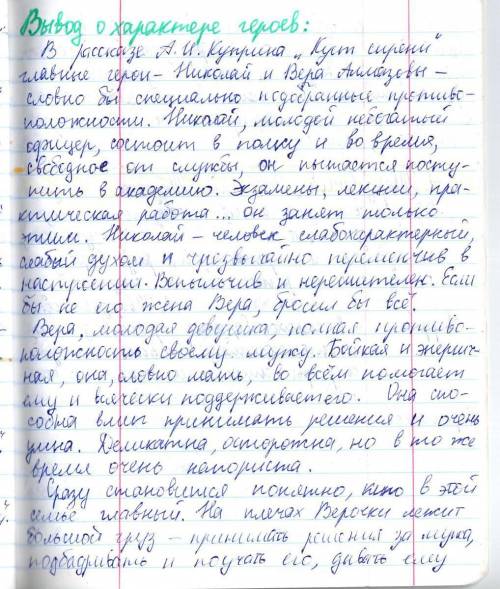 Вывод о характере героев:
В рассказе А. И. Куприна „Куст сирени"
главные герои – Николай и Вера Алмазовы –
словно бы специально подобранные противо-
положности. Николай, молодой небогатый
офицер, состоит в полку и во время,
свободное от службы, он пытается посту-
пить в академию. Экзамены, лекции, пра-
ктическая работа... он занят только
этим. Николай – человек слабохарактерный,
слабый духом и чрезвычайно переменчив в
настроении. Вспыльчив и нерешителен. Если
бы не его жена Вера, бросил бы всё.
Вера, молодая девушка, полная противо-
положность своему мужу. Бойкая и энергич-
ная, она, словно мать, во всём помогает
ему и всячески поддерживает его. Она спо-
собна вмиг принимать решения и очень
умна. Деликатна, осторожна, но в то же
время очень напориста.
Сразу становится понятно, кто в этой
семье главный. На плечах Верочки лежит
большой груз – принимать решения за мужа,
подбадривать и поучать его, давать ему